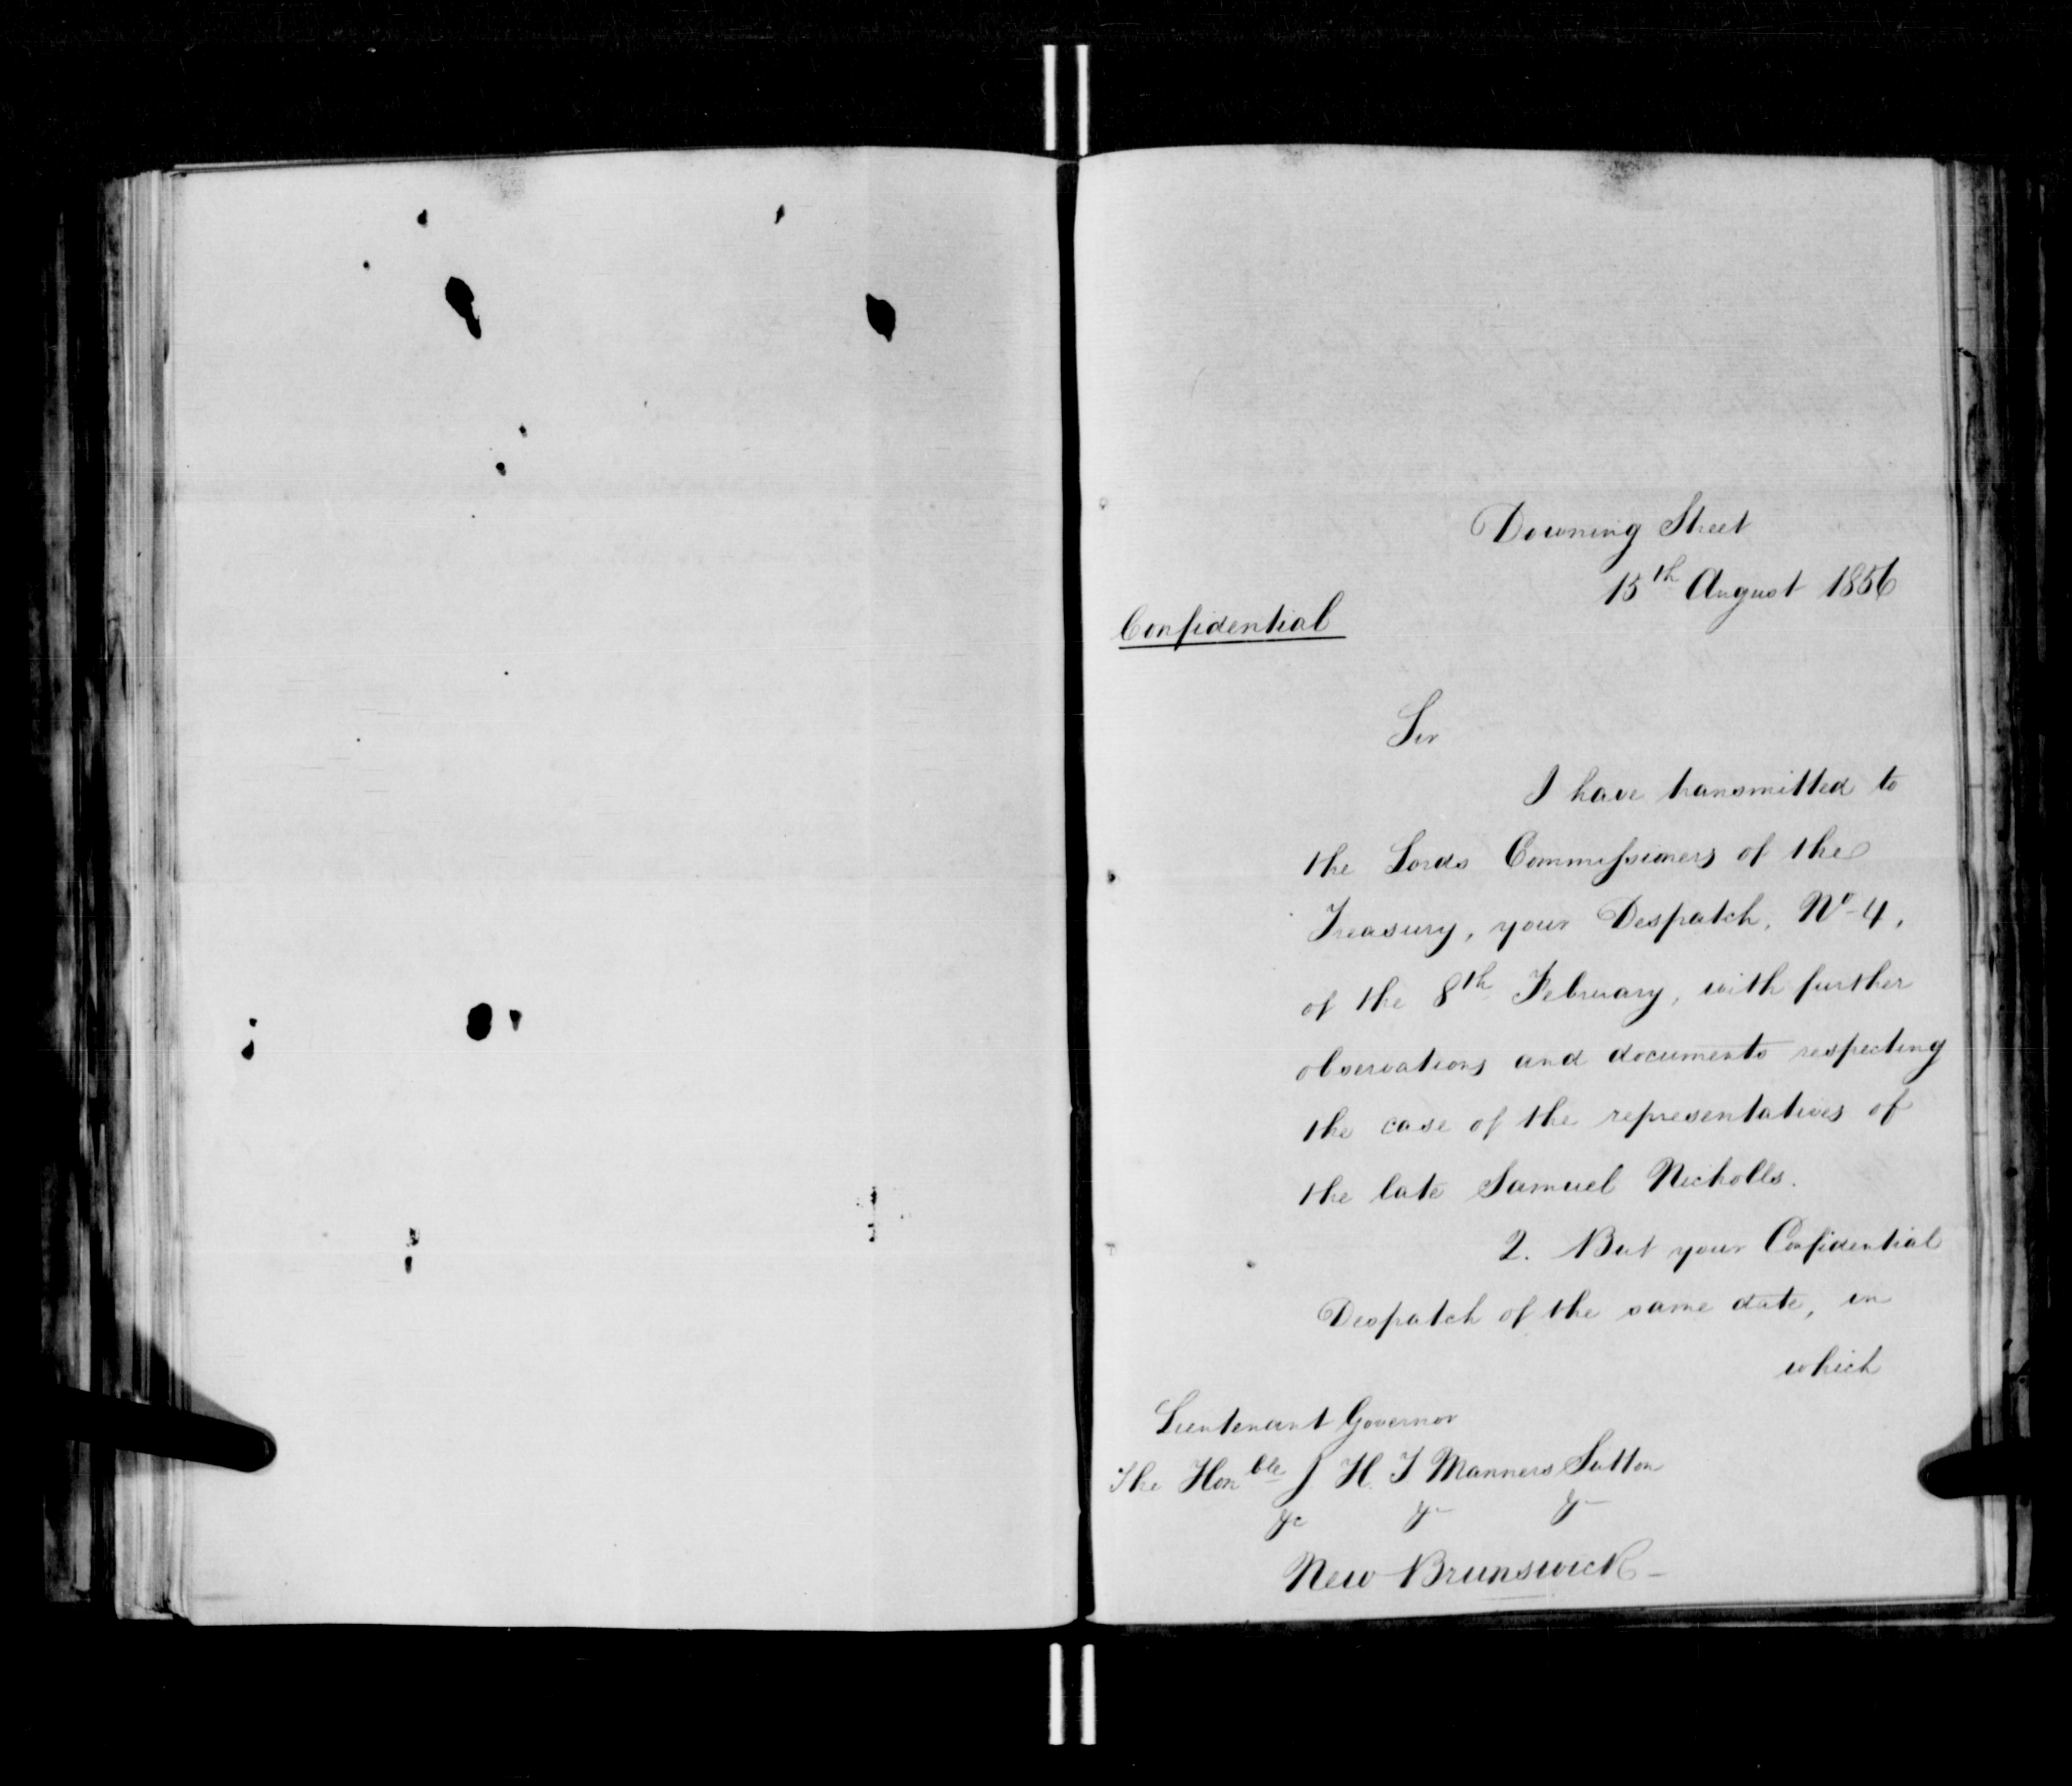 Downing Street
15th August 1856
Confidential
Sir
I have transmitted to
the Lords Commissioners of the
Treasury, your Despatch, No 4,
of the 8th February, with further
observations and documents respecting
the case of the representatives of
the late Samuel Nicholls.
2. But your Confidential
Despatch of the same date, in
which
Lieutenant Governor
The Honble J H T Manners Sutton
&c &c &c
New Brunswick